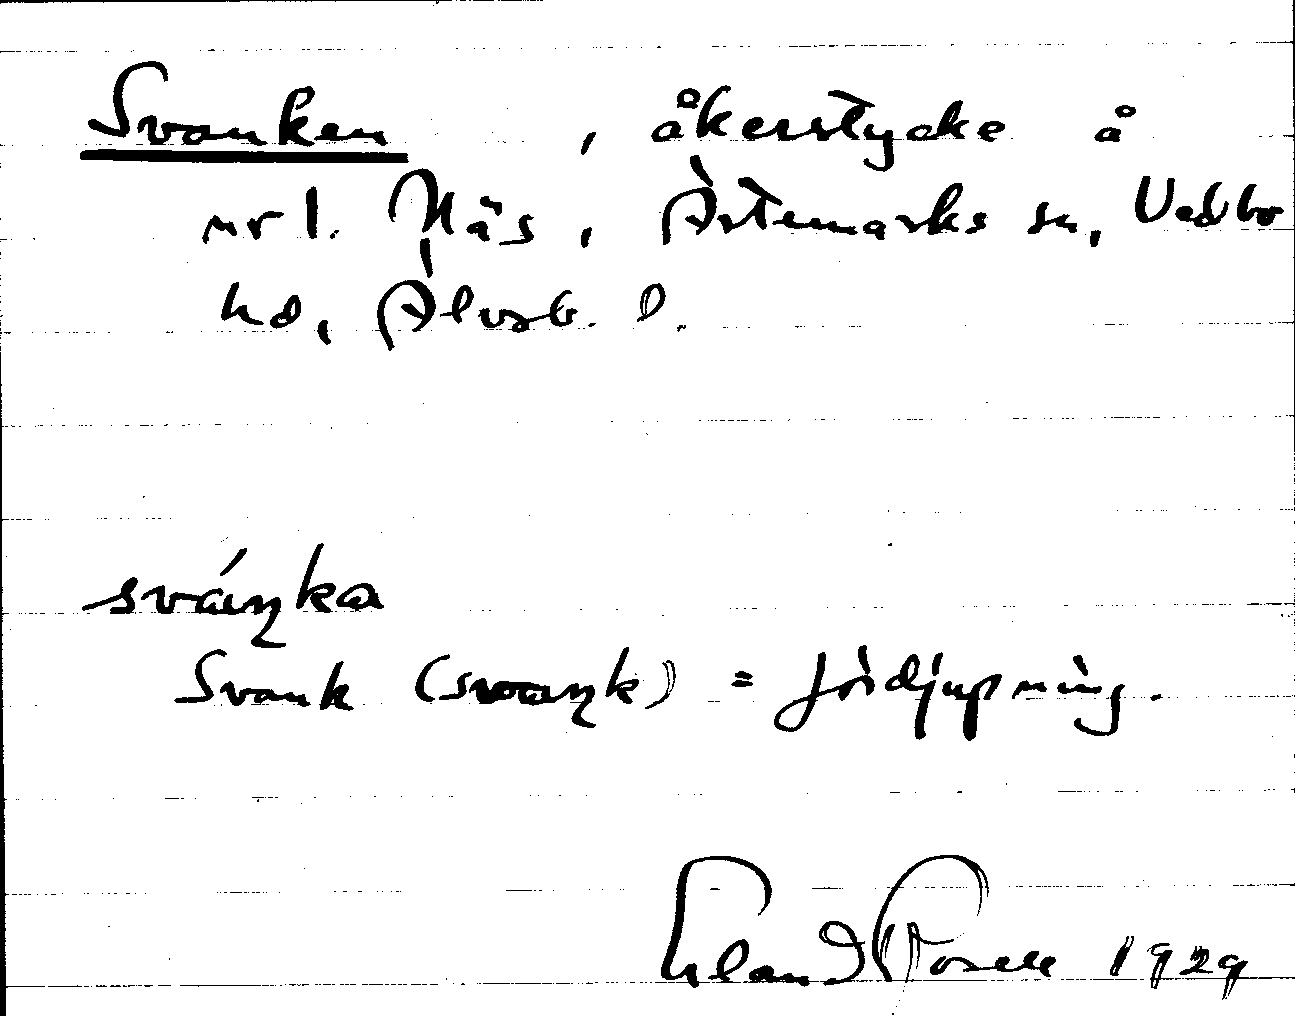 Svanken, åkerstycke å
nr 1. Näs, Ärtemarks sn, Vedbo
hd, Älvsb. l.
sváŋka
Svank (svaŋk) = fördjupning.
Erland Rosell 1929